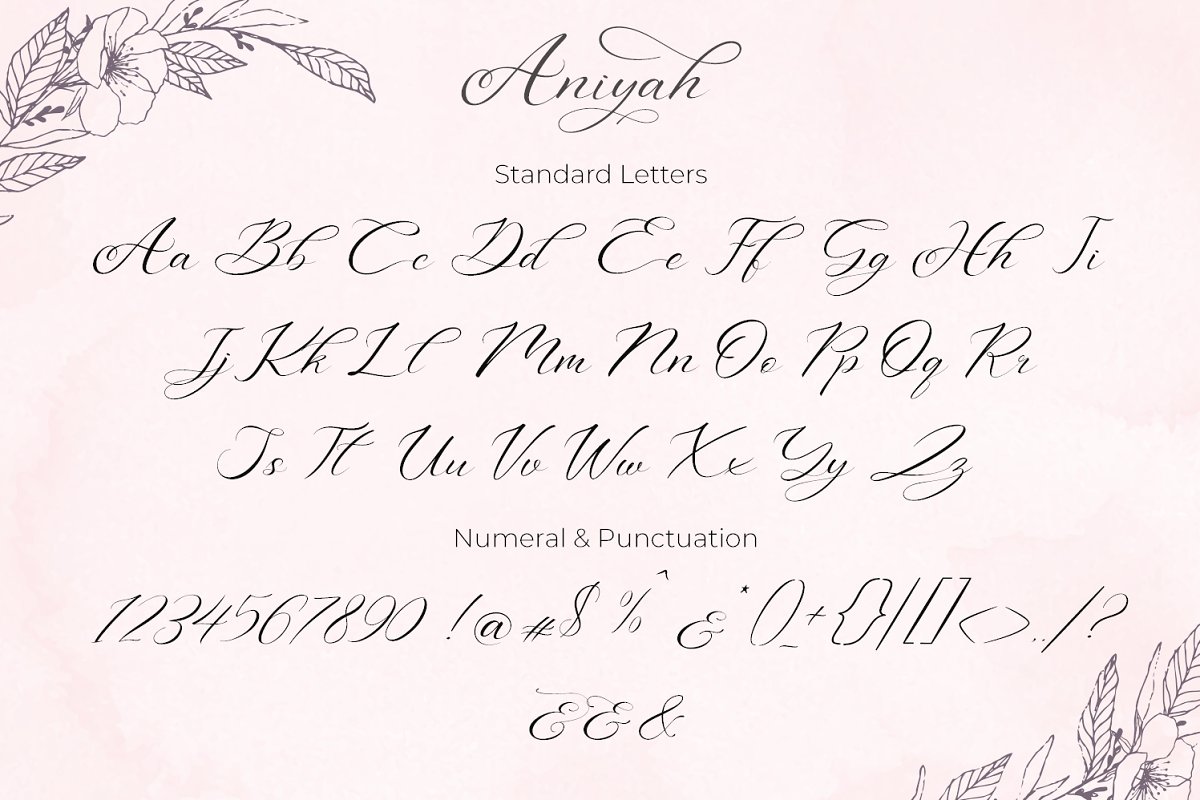 Aniyah
Standard Letters
Aa Bb Cc Dd Ee Ff Gg Hh Ii
Jj Kk Ll Mm Nn Oo Pp Qq Rr
Ss Tt Uu Vv Ww Xx Yy Zz
Numeral & Punctuation
1234567890 !@#$%^&*()_+{}|[]<>../?
&&&